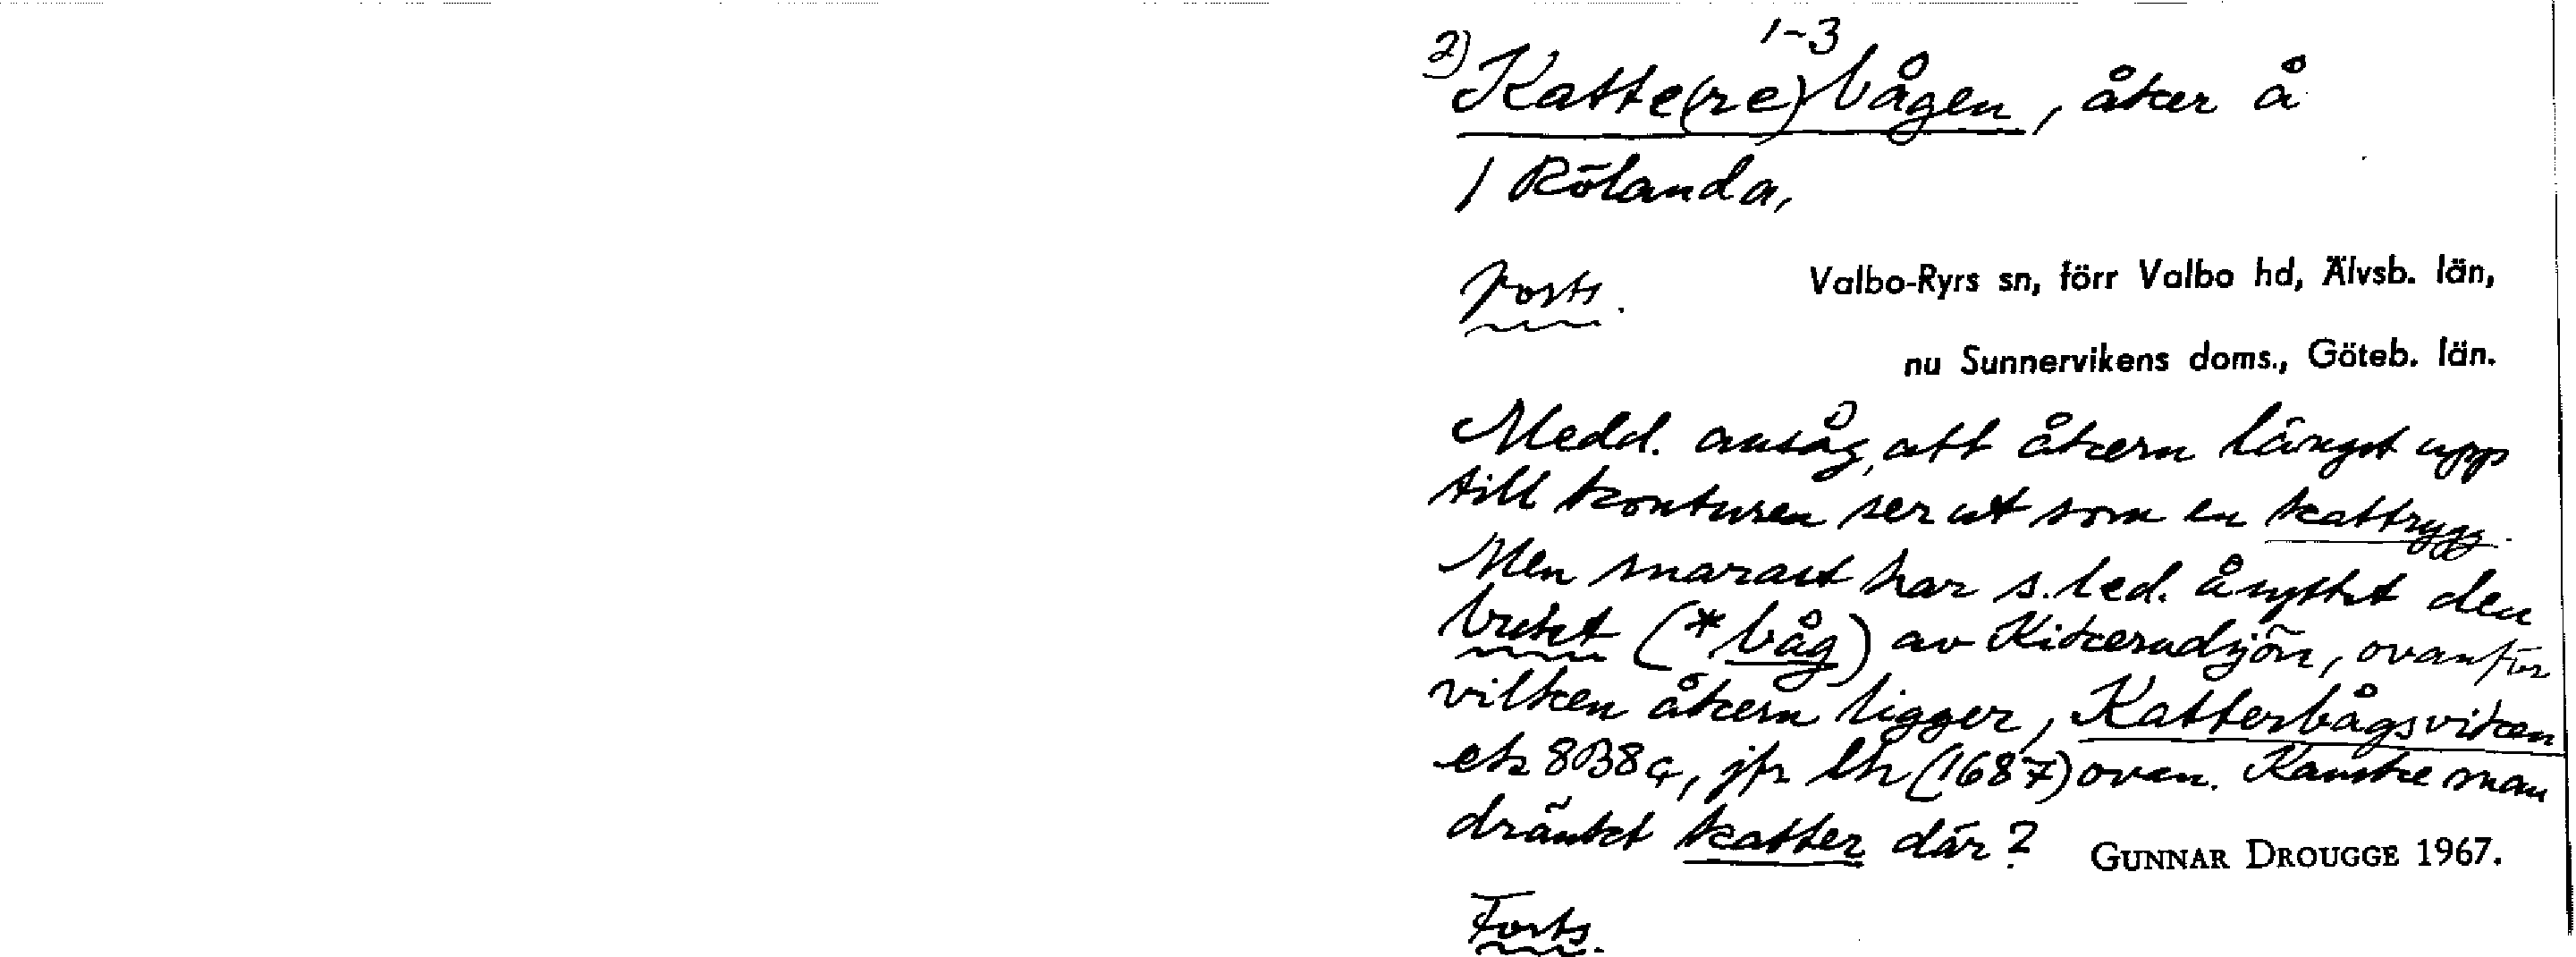 1-3
2) Katte(re)bågen, åker å
1 Rölanda,
Forts.
Valbo-Ryrs sn, förr Valbo hd, Älvsb. län,
nu Sunnervikens doms., Göteb. län.
Medd. ansåg, att åkern längst upp
till konturen ser ut som en kattrygg.
Men snarast har s. led. åsyftat den
bukt (*båg) av Kikerudsjön, ovanför
vilken åkern ligger, Katterbågsviken
ek 8B8g, jfr Lh (1687) ovan. Kanske man
dränkt katter där?
GUNNAR DROUGGE 1967.
Forts.